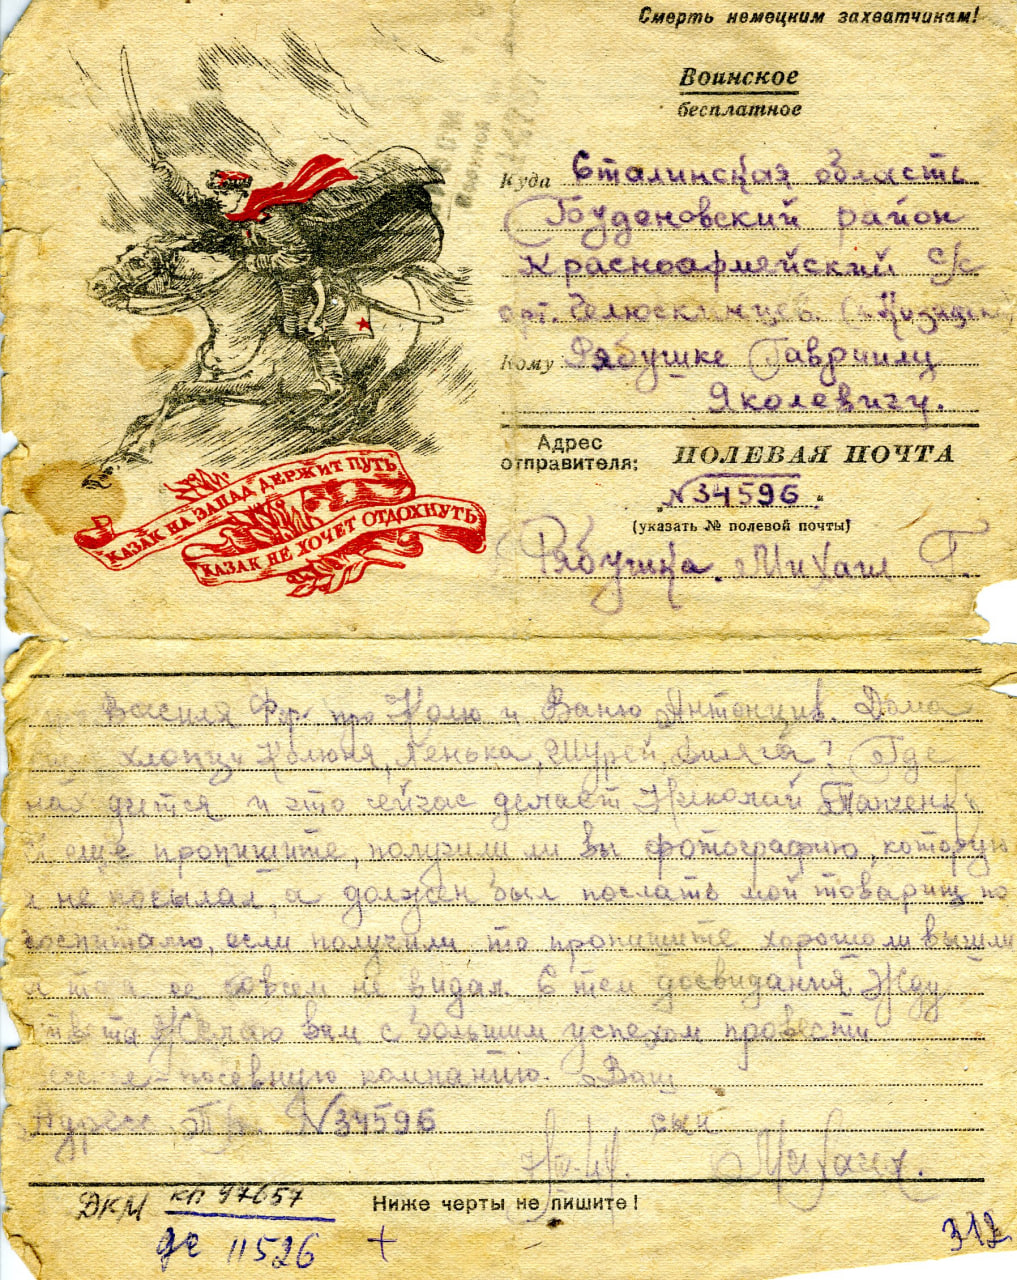 Смерть немецким захватчикам!
Воинское
бесплатное
Куда Сталинская область
Буденовский район
Красноармейский с/с
арт. Челюскинцев.
Кому Рябушке Гавриилу
Яколевичу.
Адрес отправителя: ПОЛЕВАЯ ПОЧТА
„N 34596"
(указать № полевой почты)
Рябушка Михаил Г.
КАЗАК НА ЗАПАД ДЕРЖИТ ПУТЬ
КАЗАК НЕ ХОЧЕТ ОТДОХНУТЬ
Василя про Колю и Ваню Антонцив. Дома
хлопци Колюня, Ленька, Шурей, ? Где
находится и что сейчас делает Николай
И еще пропишите, получили ли вы фотографию, которую
я не посылал, а должен был послать мой товарищ по
госпиталю, если получили то пропишите хорошо ли вышли
я ее совсем не видал. С тем досвидания Жду
ответа Желаю вам с большим успехом провести
посевную компанию. Ваш
Адресс П. N 34596 сын
Михаил.
Ниже черты не пишите!
ДКМ кп 97657
де 11526
312